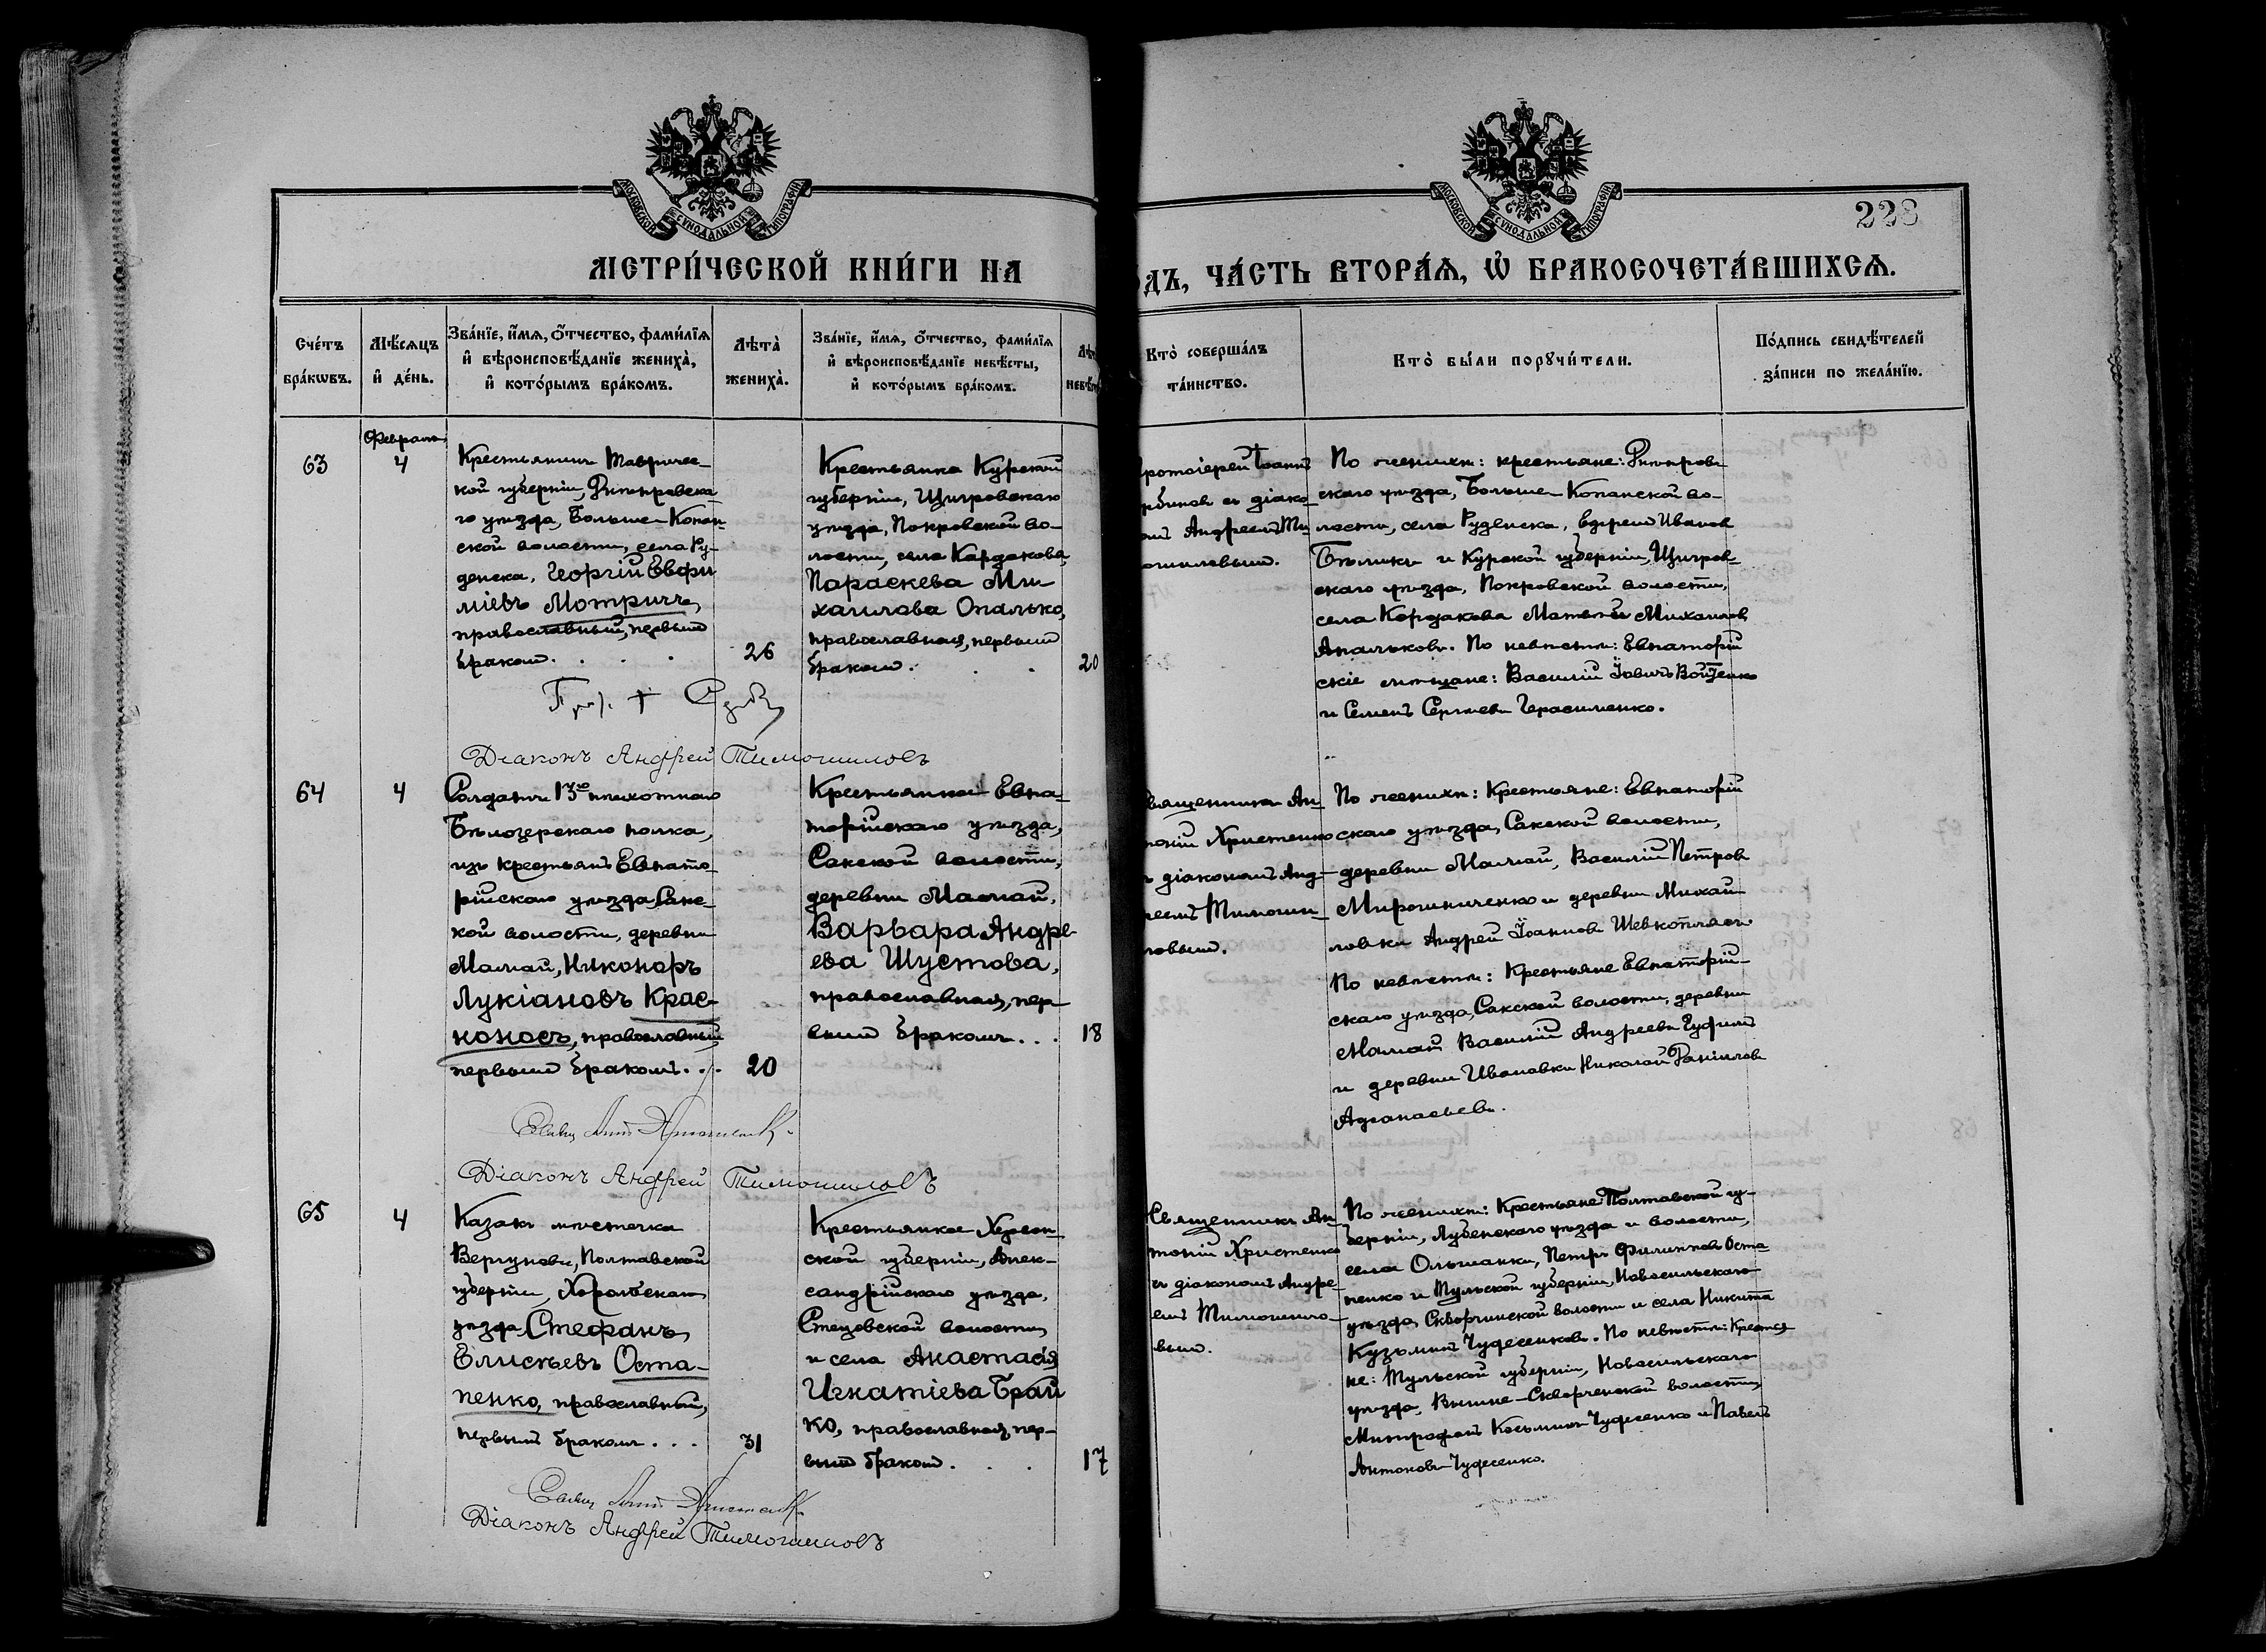 МОСКОВСКОЙ СѴНОДАЛЬНОЙ ТИПОГРАФІИ
МОСКОВСКОЙ СѴНОДАЛЬНОЙ ТИПОГРАФІИ
228
МЕТРИ́ЧЕСКОЙ КНИ́ГИ НА
ДЪ, ЧА́СТЬ ВТОРА́Ѧ, Ѡ҆ БРАКОСОЧЕТА́ВШИХСѦ.
Сче́тъ
бра́кѡвъ.
Мѣ́сѧцъ
и҆ де́нь.
Зва́нїе, и҆́мѧ, ѻ҆́тчество, фами́лїѧ
и҆ вѣроисповѣ́данїе жениха̀,
и҆ кото́рымъ бра́комъ.
Лѣта̀
жениха̀.
Зва́нїе, и҆́мѧ, ѻ҆́тчество, фами́лїѧ
и҆ вѣроисповѣ́данїе невѣ́сты,
и҆ кото́рымъ бра́комъ.
Кто̀ соверша́лъ
та́инство.
Кто̀ бы́ли порꙋчи́тели.
По́дпись свидѣ́телей
за́писи по жела́нїю.
Февраль
63
4
Крестьянинъ Тавричес-
кой губерніи, Днѣпровска-
го уѣзда, Больше-Копан-
ской волости, села Ру-
денска, Георгій Евфи
міевъ Мотричъ,
православный, первымъ
бракомъ. . . .
26
Крестьянка Курской
губерніи, Щигровскаго
уѣзда, Покровской во-
лости, села Кардакова,
Параскева Ми-
хаилова Опалько,
православная, первымъ
бракомъ. . .
20
ротоіерей Іоаннъ
съ діако-
Андреемъ Ти-
мошиловымъ.
По женихѣ: крестьяне: Днѣпров-
скаго уѣзда, Больше Копанской во-
лости, села Руденска, Ефрем Иванов
Бѣликъ и Курской губерніи, Щигров-
скаго уѣзда, Покровской волости,
села Кордакова Матвѣй Михаилов
Апальковъ. По невѣстѣ: Евпаторій
скіе мѣщане: Василій Іовичъ Войтенко
и Семенъ Сергѣевъ Герасименко.
Діаконъ Андрей Тимошиловъ
64
4
Солдатъ 13го пѣхотнаго
Бѣлозерскаго полка,
изъ крестьянъ Евпато-
рійскаго уѣзда, Сакс-
кой волости, деревни
Мамай, Никоноръ
Лукіановъ Крас-
ноносъ, православный
первымъ бракомъ. . .
20
Крестьянка Евпа-
торійскаго уѣзда,
Сакской волости,
деревни Мамай,
Варвара Андре-
ева Шустова,
православная, пер-
вымъ бракомъ. . .
18
вященникъ Ан-
тоній Христенко
съ діакономъ Анд-
реемъ Тимоши-
ловымъ.
По женихѣ: Крестьяне: Евпаторій
скаго уѣзда, Сакской волости,
деревни Мамай, Василій Петровъ
Мирошниченко и деревни Михай-
ловки Андрей Іоанновъ Шевкоплясъ.
По невѣстѣ: Крестьяне Евпаторій-
скаго уѣзда, Сакской волости, деревни
Мамай Василій Андреевъ
и деревни Ивановки Николай Даніиловъ
Афанасьевъ.
Діаконъ Андрей Тимошиловъ
65
4
Казакъ мѣстечка
Вергуновъ, Полтавской
губерніи, Хорольскаго
уѣзда Стефанъ
Елисѣевъ Оста-
пенко, православный,
первымъ бракомъ. . .
31
Крестьянка Херсон-
ской губерніи, Алек-
сандрійскаго уѣзда,
Стецовской волости
и села Анастасія
Игнатіева Брай
ко, православная, пер-
вымъ бракомъ. . .
17
Священникъ Ан-
тоній Христенко
съ діакономъ Андре-
емъ Тимошило-
вымъ.
По женихѣ: Крестьяне Полтавской гу-
берніи, Лубенскаго уѣзда и волости,
села Ольшанки, Петръ Филипповъ Оста-
пенко и Тульской губерніи, Новосильскаго
уѣзда, Скворчинской волости и села Никита
Кузьминъ Чудесенковъ. По невѣстѣ: Крестья-
не: Тульской губерніи, Новосильскаго
уѣзда, Вышне-Скворченской волости,
Митрофанъ Косьминъ Чудесенко и Павелъ
Антоновъ Чудесенко.
Діаконъ Андрей Тимошиловъ